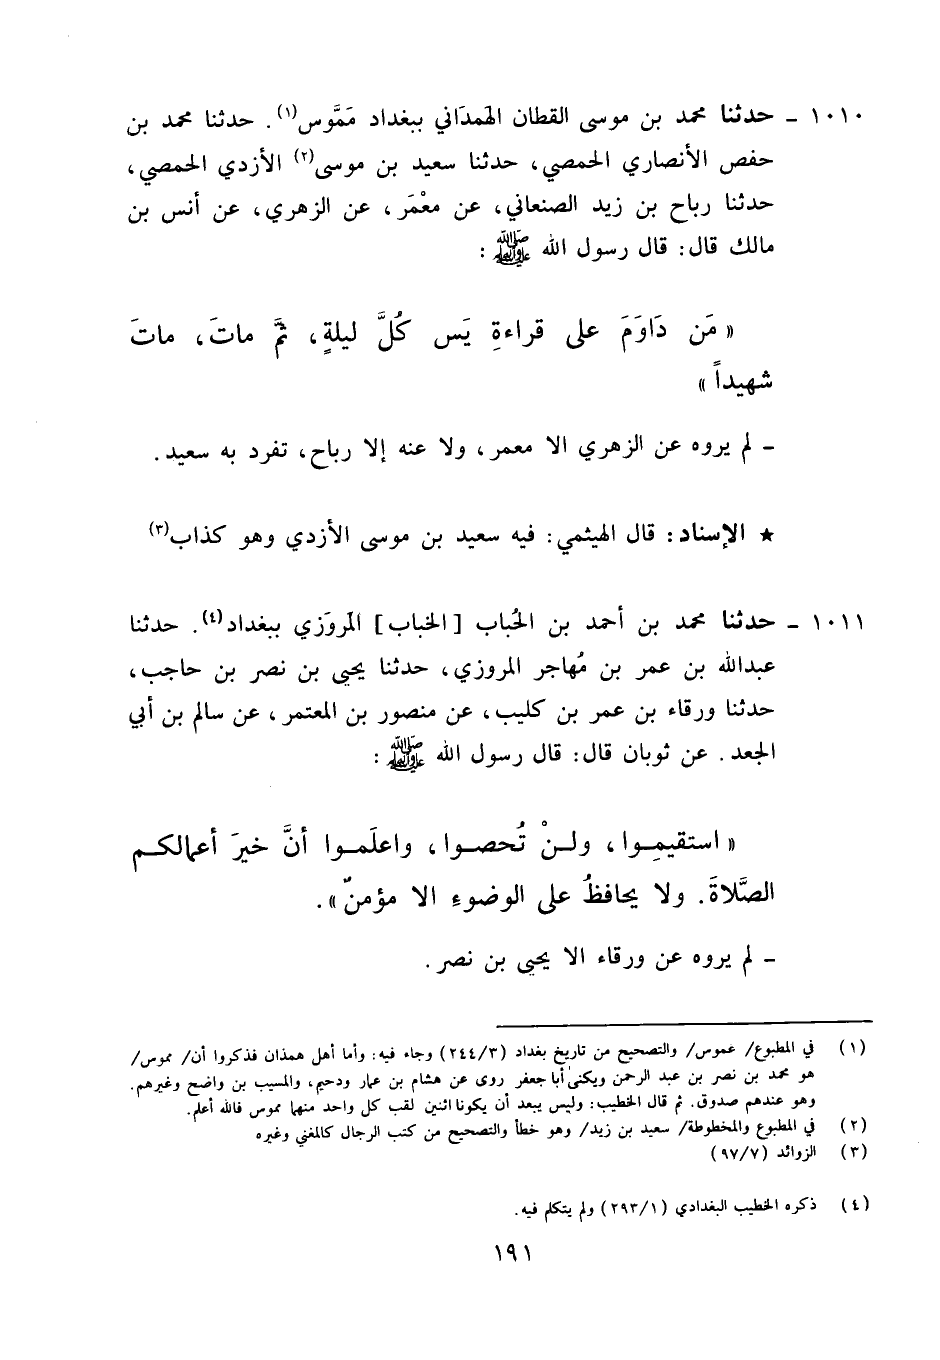 ١٠١٠ - حدثنا محمد بن موسى القطان الهمذاني ببغداد مَمَّوس(١). حدثنا محمد بن
حفص الأنصاري الحمصي، حدثنا سعيد بن موسى(٢) الأزدي الحمصي،
حدثنا رباح بن زيد الصنعاني، عن معْمَر، عن الزهري، عن أنس بن
مالك قال: قال رسول الله ﷺ:
« مَن دَاوَمَ على قراءةِ يَس كُلَّ ليلةٍ، ثمَّ ماتَ، ماتَ
شهيداً »
- لم يروه عن الزهري الا معمر، ولا عنه إلا رباح، تفرد به سعيد.
★ الإسناد: قال الهيثمي: فيه سعيد بن موسى الأزدي وهو كذاب(٣)
١٠١١ - حدثنا محمد بن أحمد بن الحُباب [الخباب] المروَزي ببغداد(٤). حدثنا
عبدالله بن عمر بن مُهاجر المروزي، حدثنا يحيى بن نصر بن حاجب،
حدثنا ورقاء بن عمر بن كليب، عن منصور بن المعتمر، عن سالم بن أبي
الجعد. عن ثوبان قال: قال رسول الله ﷺ:
« استقيمِوا، ولنْ تُحصوا، واعلَموا أنَّ خيرَ أعمالكم
الصَّلاةَ. ولا يحافظُ على الوضوءِ الا مؤمنٌ ».
- لم يروه عن ورقاء الا يحيى بن نصر.
(١) في المطبوع/ عموس/ والتصحيح من تاريخ بغداد (٢٤٤/٣) وجاء فيه: وأما أهل همذان فذكروا أن/ مموس/
هو محمد بن نصر بن عبد الرحمن ويكنى أبا جعفر روى عن هشام بن عمار ودحيم، والمسيب بن واضح وغيرهم.
وهو عندهم صدوق. ثم قال الخطيب: وليس يبعد أن يكونا اثنين لقب كل واحد منهما مموس فالله أعلم.
(٢) في المطبوع والمخطوطة/ سعيد بن زيد/ وهو خطأ والتصحيح من كتب الرجال كالمغني وغيره
(٣) الزوائد (٩٧/٧)
(٤) ذكره الخطيب البغدادي (٢٩٣/١) ولم يتكلم فيه.
١٩١